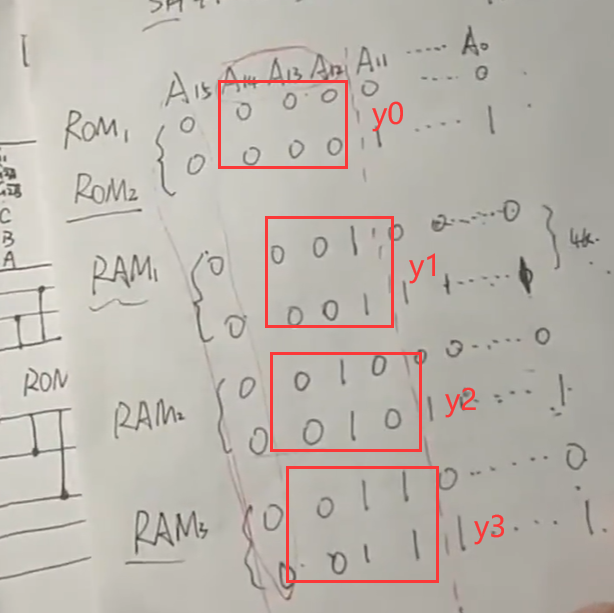 A15 A14 A13 A12 A11 ..... A0
ROM1 0 0 0 0 0 ..... 0
y0
ROM2 0 0 0 0 1 ..... 1
RAM1 0 0 0 1 0 0 ..... 0
y1
4k
0 0 0 1 1 1 .....
RAM2 0 0 1 0 0 0 ..... 0
y2
0 0 1 0 1 ..... 1
RAM3 0 0 1 1 0 ..... 0
y3
0 0 1 1 1 ..... 1
C
B
A